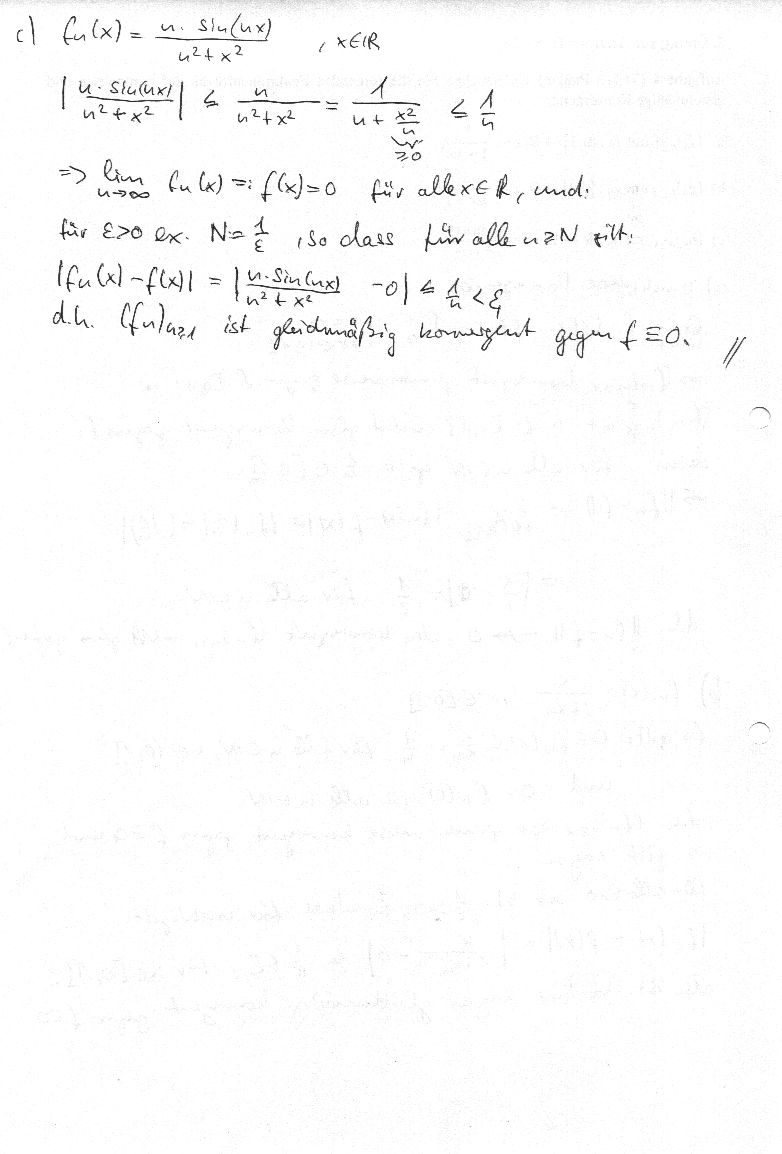 c) fn(x) = n · sin(nx) / n² + x² , x∈ℝ
| n · sin(nx) / n² + x² | ≤ n / n² + x² = 1 / n + x²/n ≤ 1/n
≥0
=> lim n→∞ fn(x) =: f(x) = 0 für alle x ∈ ℝ, und:
für ε>0 ex. N = 1/ε , so dass für alle n ≥ N gilt:
|fn(x) - f(x)| = | n · sin(nx) / n² + x² - 0 | ≤ 1/n < ε,
d.h. (fn)n≥1 ist gleichmäßig konvergent gegen f ≡ 0. //